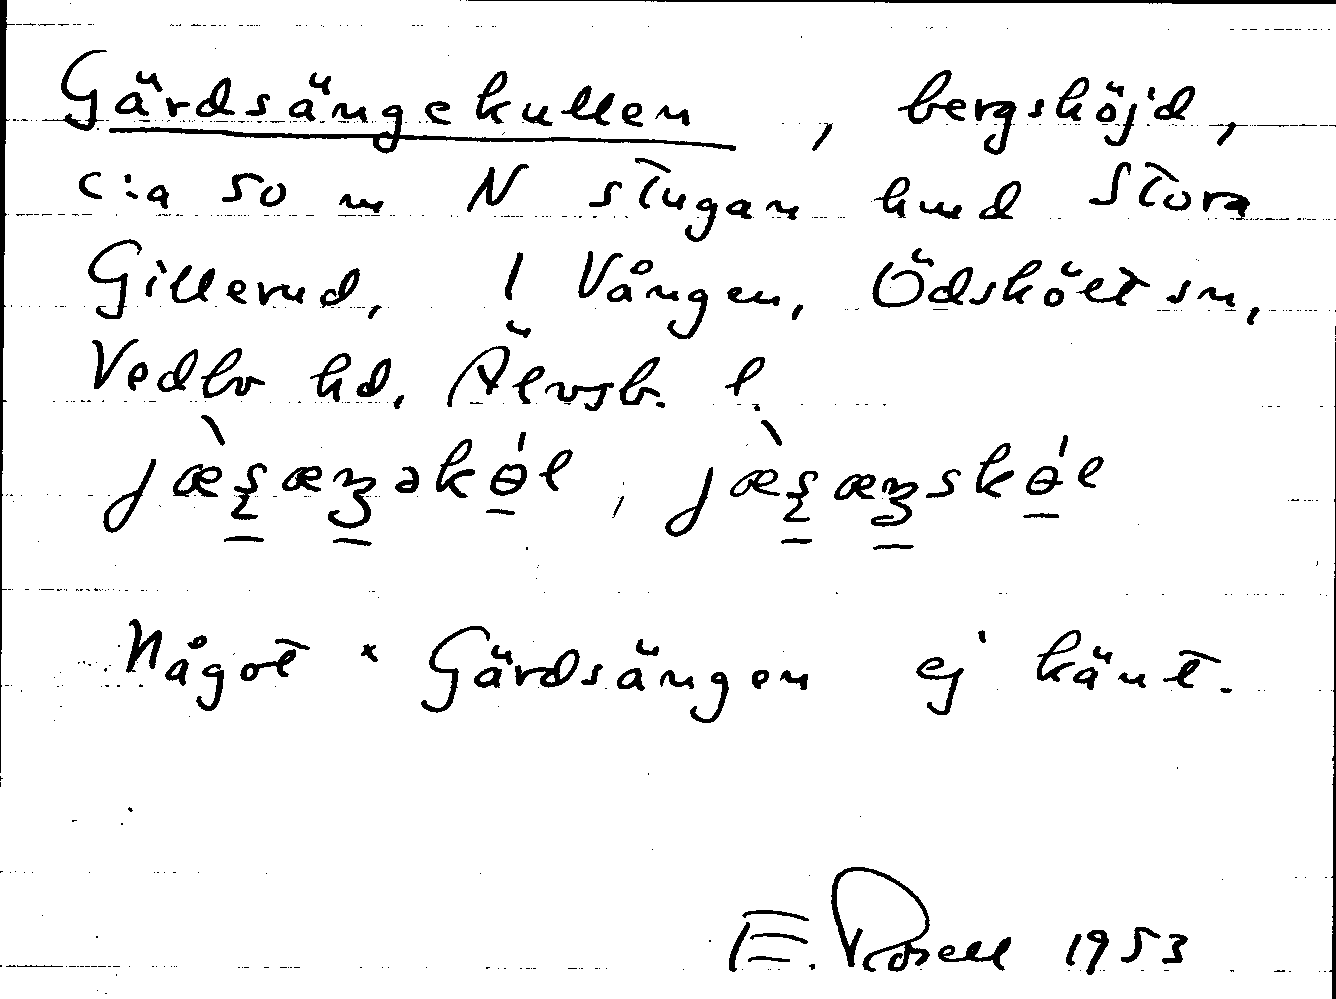 Gärdsängekullen, bergshöjd,
c:a 50 m N stugan hmd Stora
Gillerud, 1 Vången, Ödskölt sn,
Vedbo hd, Älvsb. l.
Något * Gärdsängen ej känt.
E. Rosell 1953